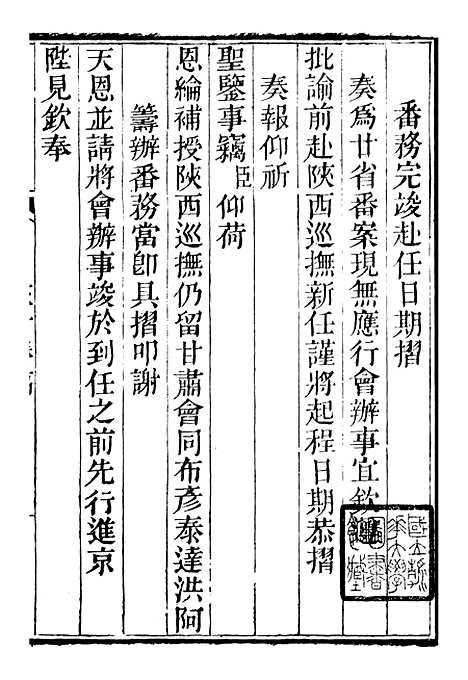 番務完竣赴任日期摺
奏爲甘省番案現無應行會辦事宜欽
批諭前赴陝西巡撫新任謹將起程日期恭摺
奏報仰祈
聖鑒事竊臣仰荷
恩綸補授陝西巡撫仍留甘肅會同布彥泰達洪阿
籌辦番務當卽具摺叩謝
天恩並請將會辦事竣於到任之前先行進京
陛見欽奉